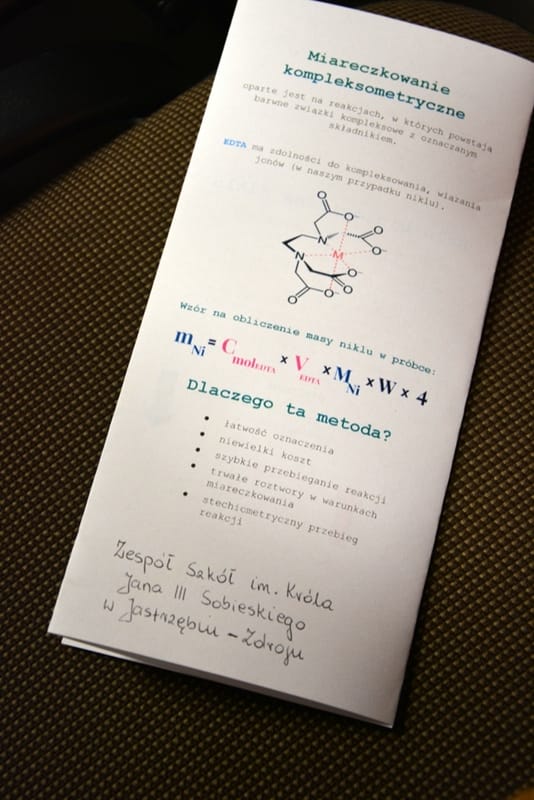 Miareczkowanie
kompleksometryczne
oparte jest na reakcjach, w których powstają
barwne związki kompleksowe z oznaczanym
składnikiem.
EDTA ma zdolności do kompleksowania, wiązania
jonów (w naszym przypadku niklu).
O
O⁻
N
O
O⁻
N
M
O⁻
O
O⁻
O
Wzór na obliczenie masy niklu w próbce:
mNi = CmolEDTA x VEDTA x MNi x W x 4
Dlaczego ta metoda?
• łatwość oznaczenia
• niewielki koszt
• szybkie przebieganie reakcji
• trwałe roztwory w warunkach
miareczkowania
• stechiometryczny przebieg
reakcji
Zespół Szkół im. Króla
Jana III Sobieskiego
w Jastrzębiu - Zdroju